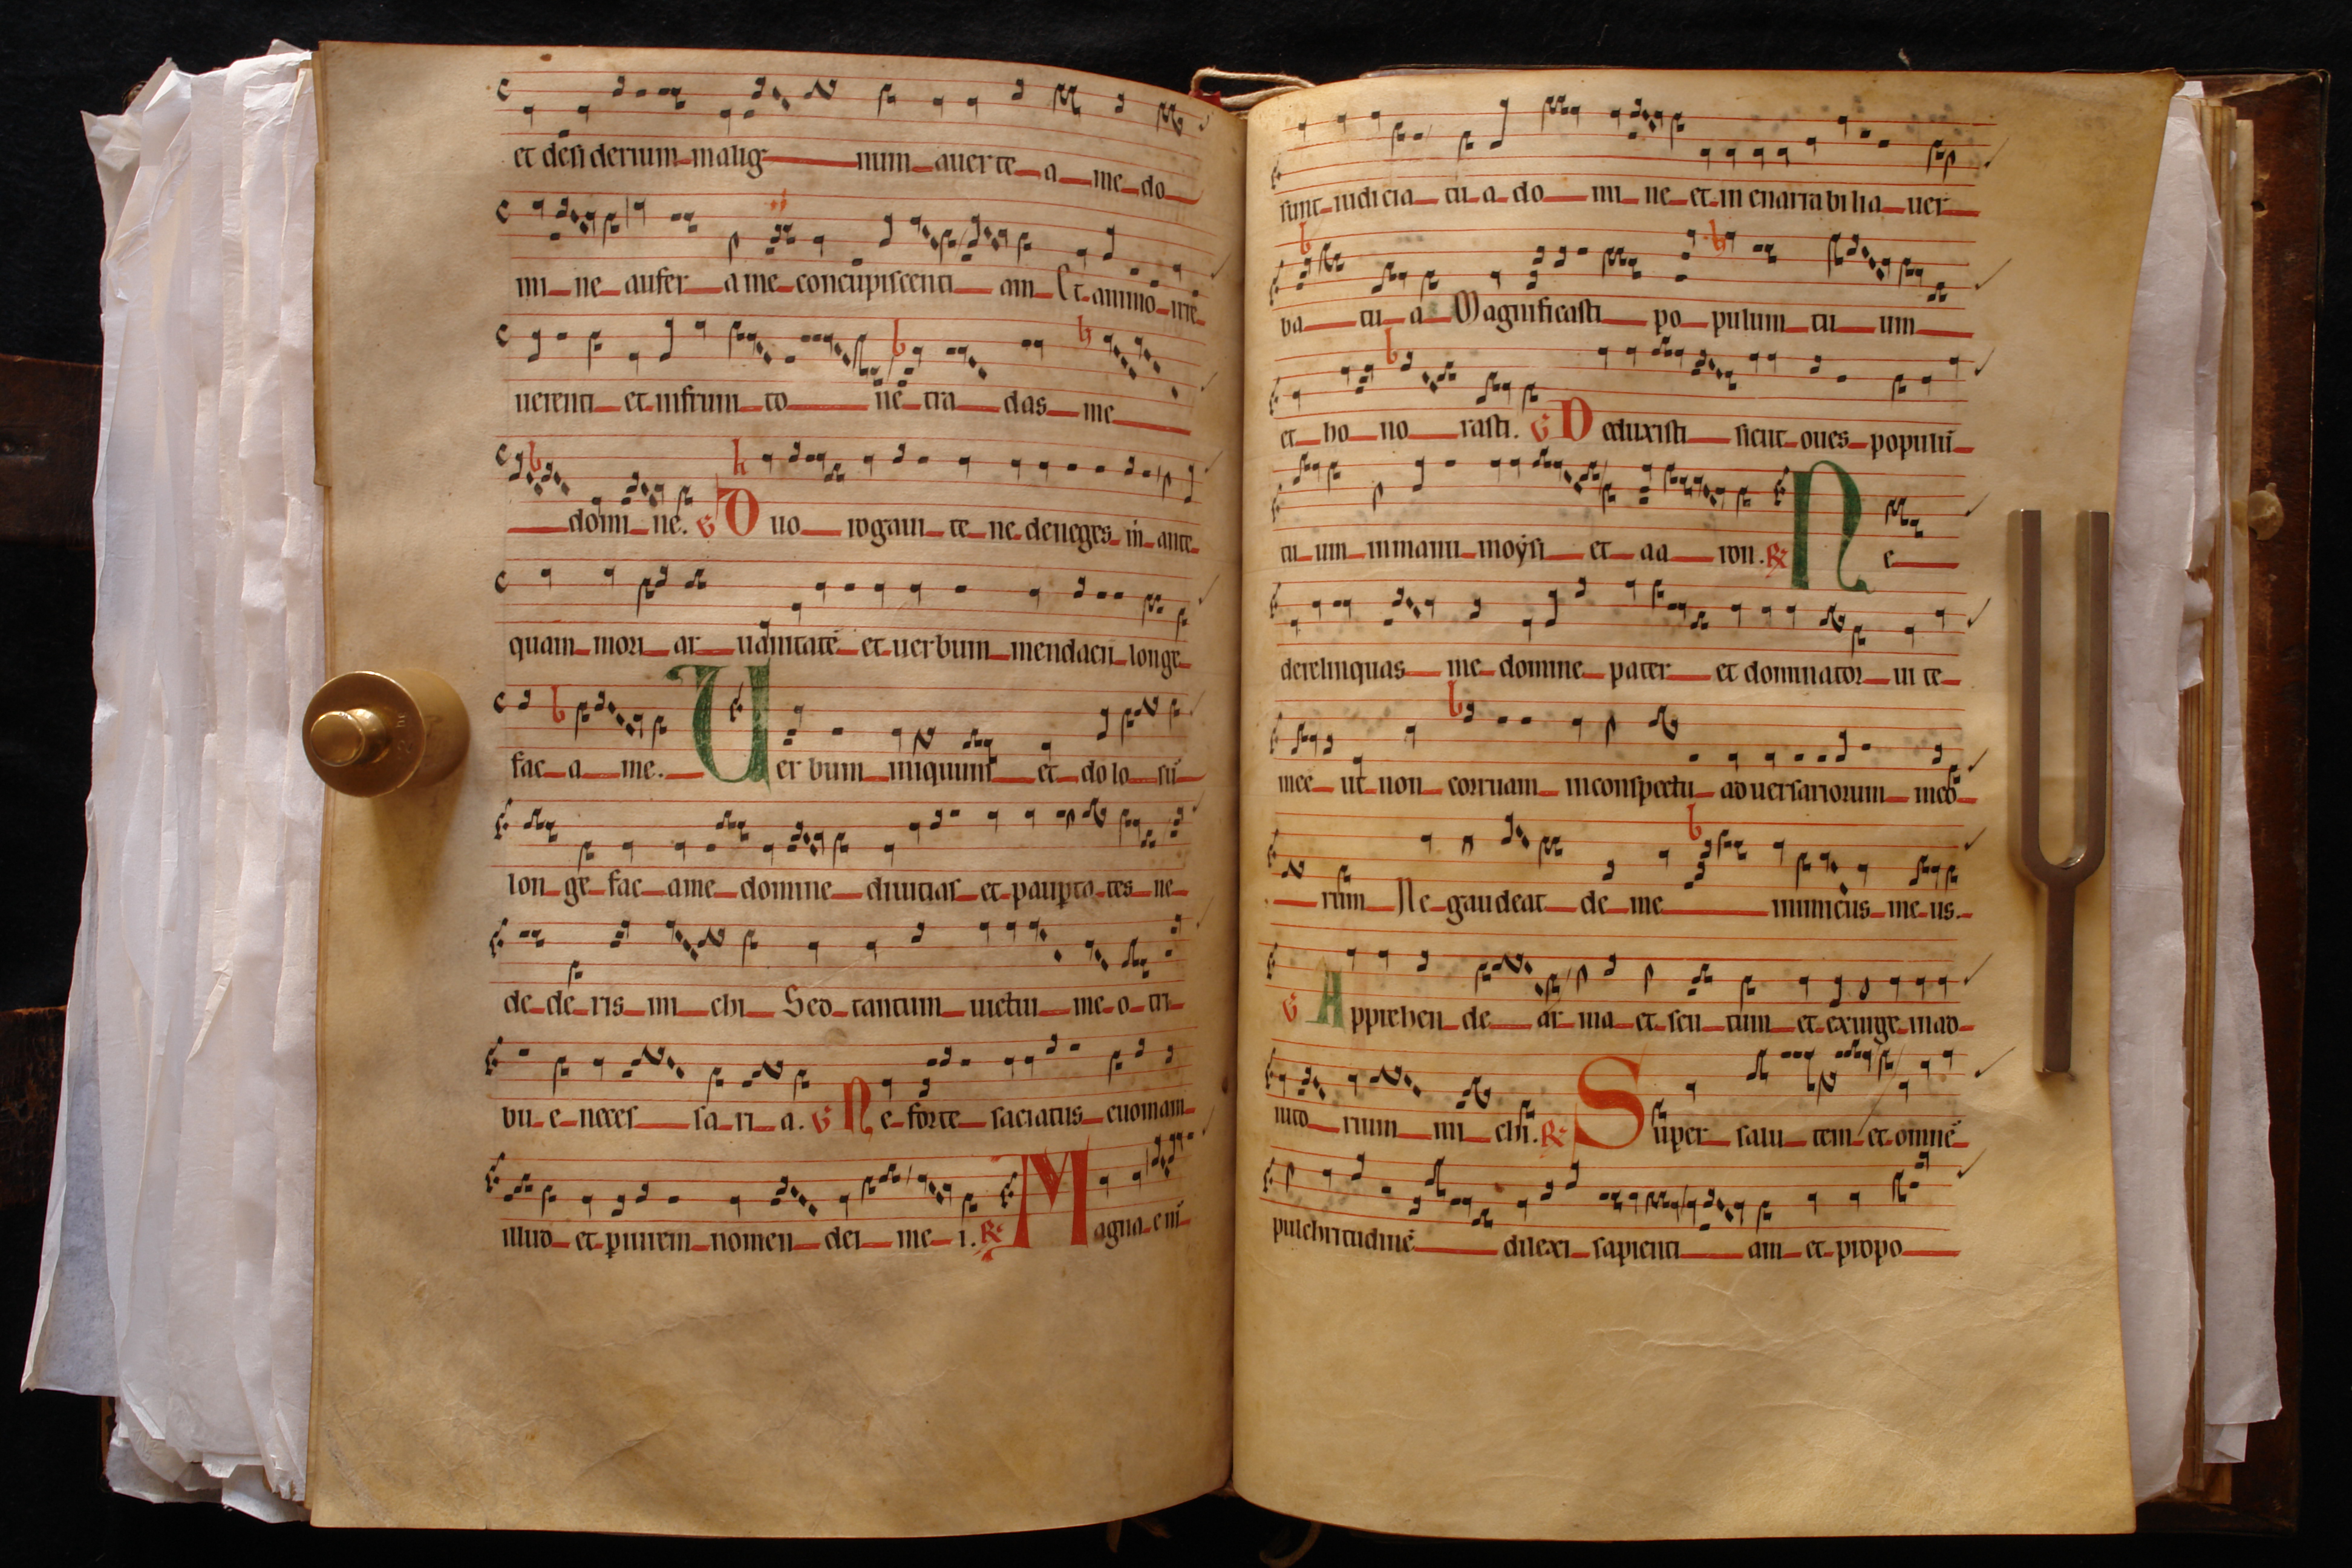 et desi derium malig num auerte a me do
mi ne aufer a me concupiscenti am Et animo irre
uerenti et infruni to ne tra das me
domi ne. V Duo rogaui te ne deneges in ante
quam mori ar uanitatē et uerbum mendacii longe
fac a me. Uerbum iniquum et dolo sū
lon ge fac a me domine diuitias et paupta tes ne
de de ris mi chi Sed tantum uictui me o tri
bu e neces sa ri a. V Ne forte saciatus euomam
illud et piurem nomen dei me i. R Magna eni
sunt iudicia tu a do mi ne et in enarrabi lia uer
ba tu a Magnificasti po pulum tu um
et ho no rasti. V Deduxisti sicut oues populū
tu um in manu moẏsi et aa ron. R Ne
derelinquas me domine pater et dominator ui te
mee ut non corruam in conspectu aduersariorum meo
rum Ne gaudeat de me inimicus me us.
V Apprehen de ar ma et scu tum et exurge in ad
iuto rium mi chi. R Super salu tem et omnē
pulchritudinē dilexi sapienti am et propo